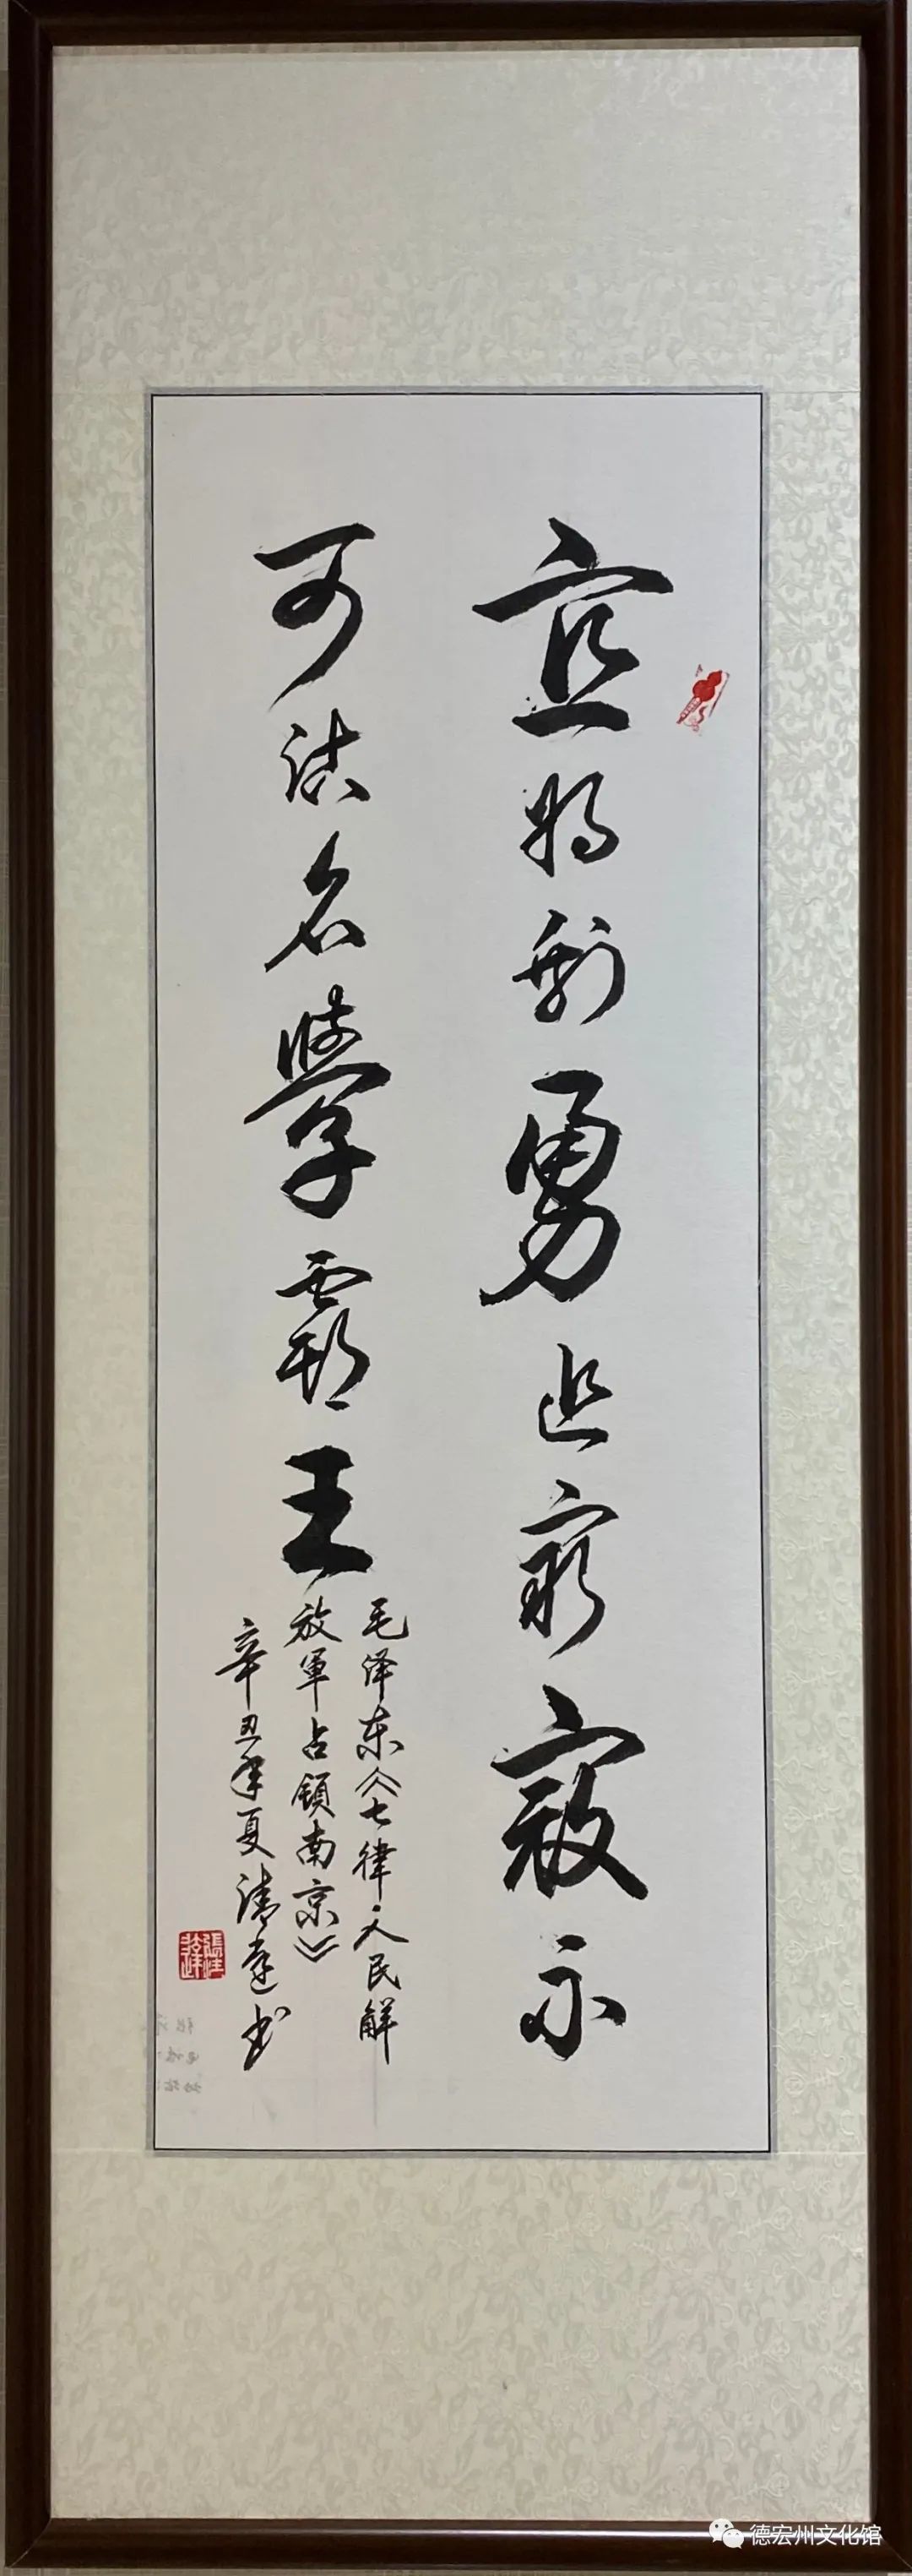 宜将剩勇追穷寇示
可沽名學霸王
毛泽东《七律·人民解
放軍占領南京》
辛丑年夏 達书
德宏州文化馆